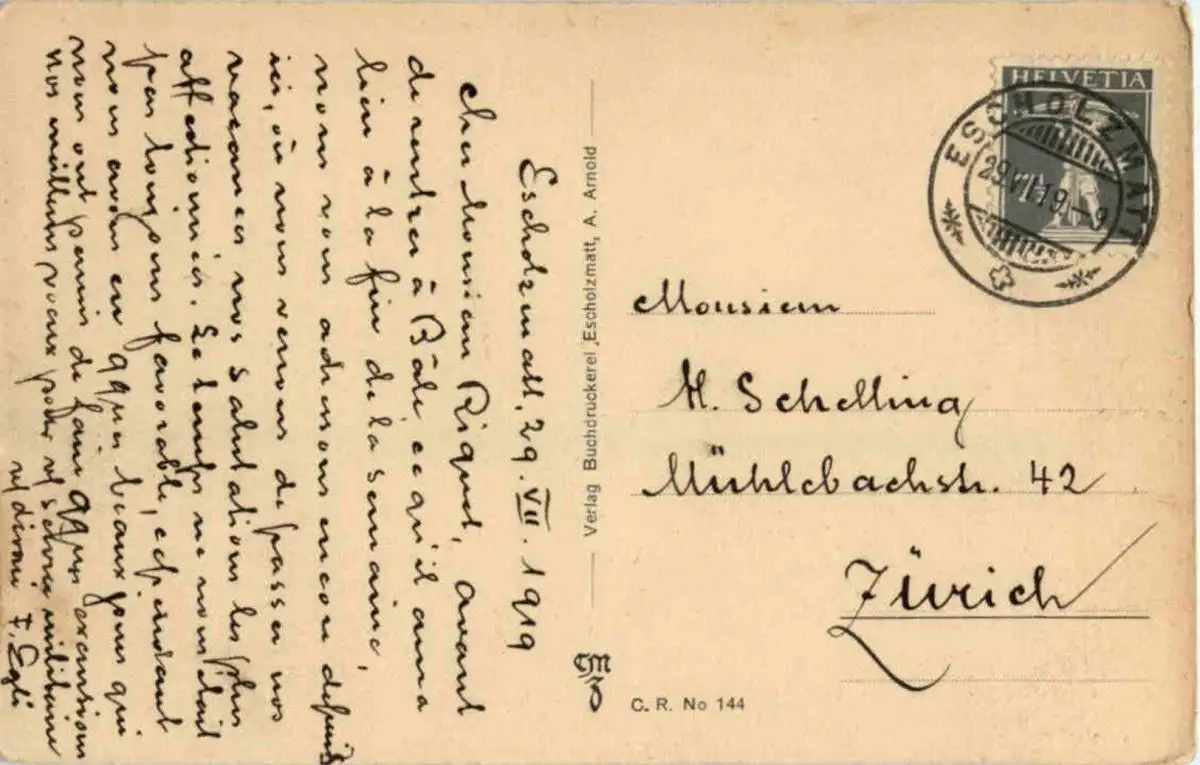 Escholzmatt, 29. VII. 1919
cher Monsieur Riquet, avant
de rentrer à Bâle ce qu'il aura
lieu à la fin de la semaine,
nous vous adressons encore depuis
ici, où nous venons de passer nos
vacances nos salutations les plus
affectionnées. Le temps ne nous était
pas toujours favorable, cependant
nous avons eu qques beaux jours qui
nous ont permis de faire qques excursions
nos meilleurs vœux pour vf service militaire
vf dévoué F. Egli
Verlag Buchdruckerei „Escholzmatt, A. Arnold
CM
C. R. No 144
HELVETIA
ESCHOLZMATT
29.VII.19.-9
Monsieur
H. Schelling
Mühlebachstr. 42
Zürich